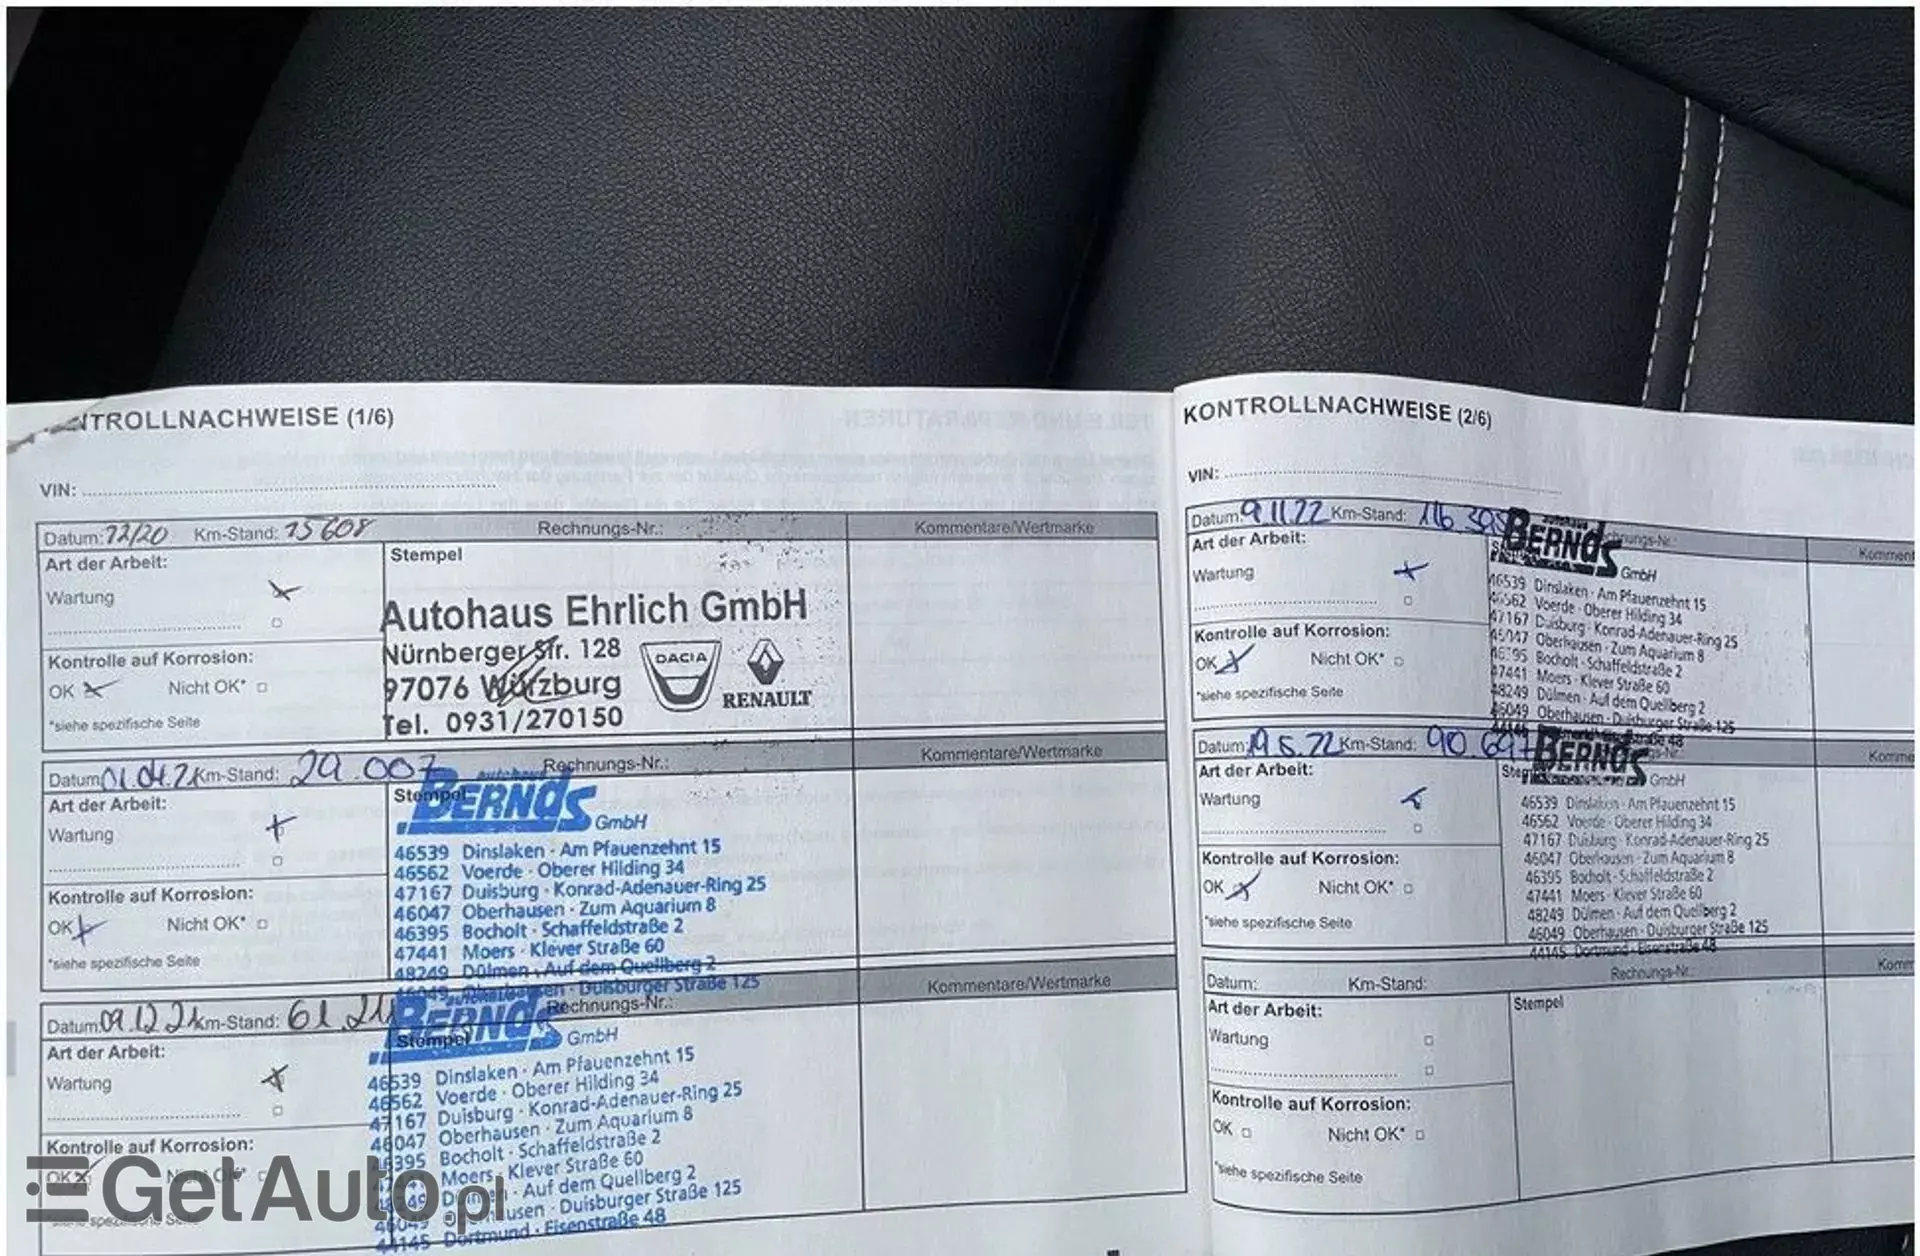 NTROLLNACHWEISE (1/6)
VIN:
Datum: 12/20 Km-Stand: 15608 Rechnungs-Nr.: Kommentare/Wertmarke
Art der Arbeit:
Stempel
Wartung
Autohaus Ehrlich GmbH
Nürnberger Str. 128
97076 Würzburg
Tel. 0931/270150
DACIA
RENAULT
Kontrolle auf Korrosion:
OK Nicht OK*
*siehe spezifische Seite
Datum: 01.04.21 Km-Stand: 29.007 Rechnungs-Nr.: Kommentare/Wertmarke
Art der Arbeit:
Stempel
Wartung
autohaus
BERNDS
GmbH
46539 Dinslaken · Am Pfauenzehnt 15
46562 Voerde · Oberer Hilding 34
47167 Duisburg · Konrad-Adenauer-Ring 25
46047 Oberhausen · Zum Aquarium 8
46395 Bocholt · Schaffeldstraße 2
47441 Moers · Klever Straße 60
48249 Dülmen · Auf dem Quellberg 2
46049 Oberhausen · Duisburger Straße 125
Kontrolle auf Korrosion:
OK Nicht OK*
*siehe spezifische Seite
Datum: 09.12.21 Km-Stand: 61.211 Rechnungs-Nr.: Kommentare/Wertmarke
Art der Arbeit:
Stempel
Wartung
autohaus
BERNDS
GmbH
46539 Dinslaken · Am Pfauenzehnt 15
46562 Voerde · Oberer Hilding 34
47167 Duisburg · Konrad-Adenauer-Ring 25
46047 Oberhausen · Zum Aquarium 8
46395 Bocholt · Schaffeldstraße 2
47441 Moers · Klever Straße 60
48249 Dülmen · Auf dem Quellberg 2
46049 Oberhausen · Duisburger Straße 125
44145 Dortmund · Eisenstraße 48
Kontrolle auf Korrosion:
OK Nicht OK*
*siehe spezifische Seite
GetAuto.pl
KONTROLLNACHWEISE (2/6)
VIN:
Datum: 9.11.22 Km-Stand: 116 398 Rechnungs-Nr.: Komment
Art der Arbeit:
Wartung
autohaus
BERNDS
GmbH
46539 Dinslaken · Am Pfauenzehnt 15
46562 Voerde · Oberer Hilding 34
47167 Duisburg · Konrad-Adenauer-Ring 25
46047 Oberhausen · Zum Aquarium 8
46395 Bocholt · Schaffeldstraße 2
47441 Moers · Klever Straße 60
48249 Dülmen · Auf dem Quellberg 2
46049 Oberhausen · Duisburger Straße 125
Kontrolle auf Korrosion:
OK Nicht OK*
*siehe spezifische Seite
Datum: 19.5.22 Km-Stand: 90.697 Komme
Art der Arbeit:
Wartung
BERNDS
GmbH
46539 Dinslaken · Am Pfauenzehnt 15
46562 Voerde · Oberer Hilding 34
47167 Duisburg · Konrad-Adenauer-Ring 25
46047 Oberhausen · Zum Aquarium 8
46395 Bocholt · Schaffeldstraße 2
47441 Moers · Klever Straße 60
48249 Dülmen · Auf dem Quellberg 2
46049 Oberhausen · Duisburger Straße 125
44145 Dortmund · Eisenstraße 48
Kontrolle auf Korrosion:
OK Nicht OK*
*siehe spezifische Seite
Datum: Km-Stand: Rechnungs-Nr.: Komm
Art der Arbeit:
Stempel
Wartung
Kontrolle auf Korrosion:
OK Nicht OK*
*siehe spezifische Seite